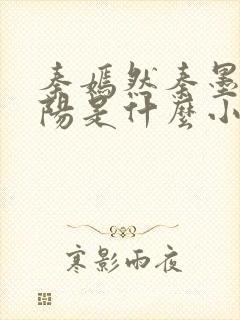 秦嫣然秦墨
陽是什麼小
寒影雨夜